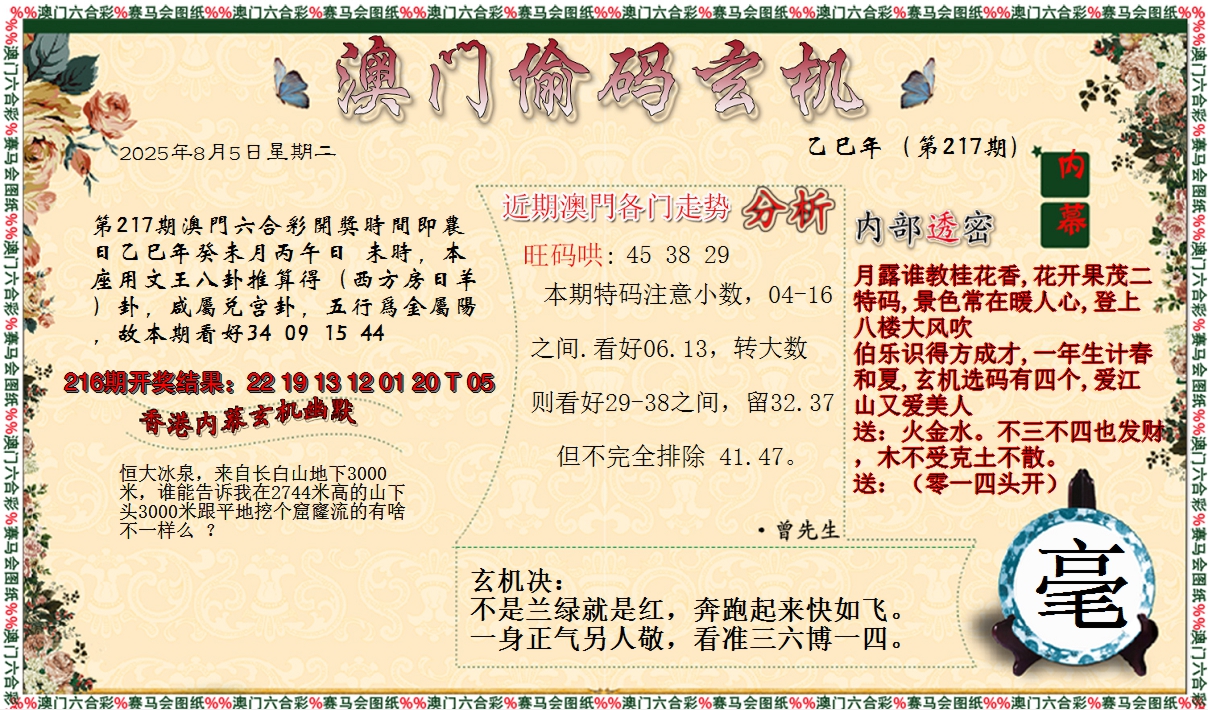 %%澳门六合彩%赛马会图纸%%澳门六合彩%赛马会图纸%%澳门六合彩%赛马会图纸%%澳门六合彩%赛马会图纸%%澳门六合彩%赛马会图纸%%澳门六合彩%赛马会图纸%%
澳门偷码玄机
2025年8月5日星期二
乙巳年 （第217期）
内
幕
第217期澳門六合彩開獎時間即農
日乙巳年癸未月丙午日 未時，本
座用文王八卦推算得（西方房日羊
）卦，咸屬兑宫卦，五行爲金屬陽
，故本期看好34 09 15 44
216期开奖结果：22 19 13 12 01 20 T 05
香港内幕玄机幽默
恒大冰泉，来自长白山地下3000
米，谁能告诉我在2744米高的山下
头3000米跟平地挖个窟窿流的有啥
不一样么 ？
近期澳門各门走势 分析
旺码哄: 45 38 29
本期特码注意小数，04-16
之间.看好06.13，转大数
则看好29-38之间，留32.37
但不完全排除 41.47。
·曾先生
内部透密
月露谁教桂花香,花开果茂二
特码,景色常在暖人心,登上
八楼大风吹
伯乐识得方成才,一年生计春
和夏,玄机选码有四个,爱江
山又爱美人
送：火金水。不三不四也发财
，木不受克土不散。
送：（零一四头开）
玄机决：
不是兰绿就是红，奔跑起来快如飞。
一身正气另人敬，看准三六博一四。
毫
%%澳门六合彩%赛马会图纸%%澳门六合彩%赛马会图纸%%澳门六合彩%赛马会图纸%%澳门六合彩%赛马会图纸%%澳门六合彩%赛马会图纸%%澳门六合彩%赛马会图纸%%